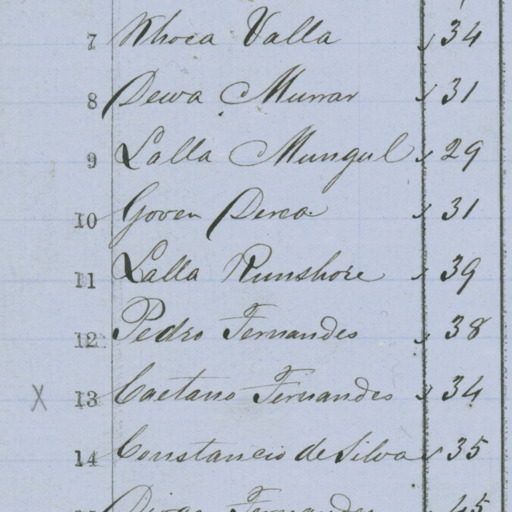 7 Khoca Valla 34
8 Dewa Murrar 31
9 Lalla Mungul 29
10 Goven Dewa 31
11 Lalla Runshore 39
12 Pedro Fernandes 38
13 Caetano Fernandes 34
14 Constancio de Silva 35
Fernandes 45